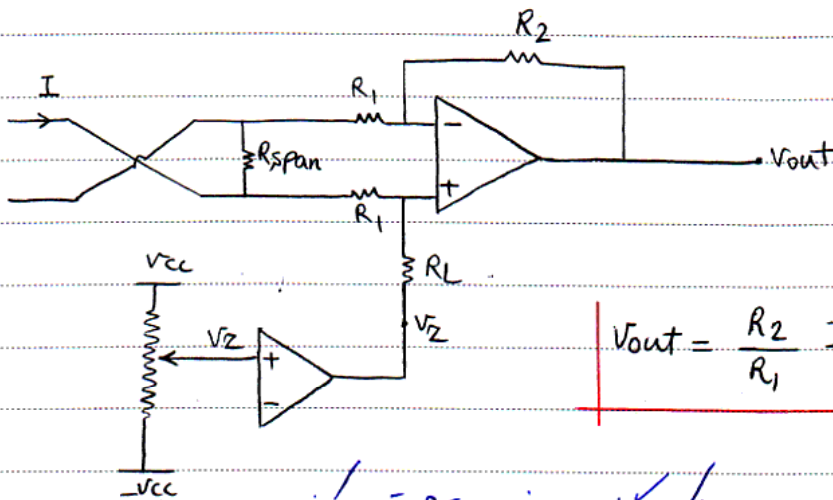 R2
I
R1
Rspan
Vout
R1
Vcc
RL
Vz
Vz
Vout = R2 / R1
-Vcc